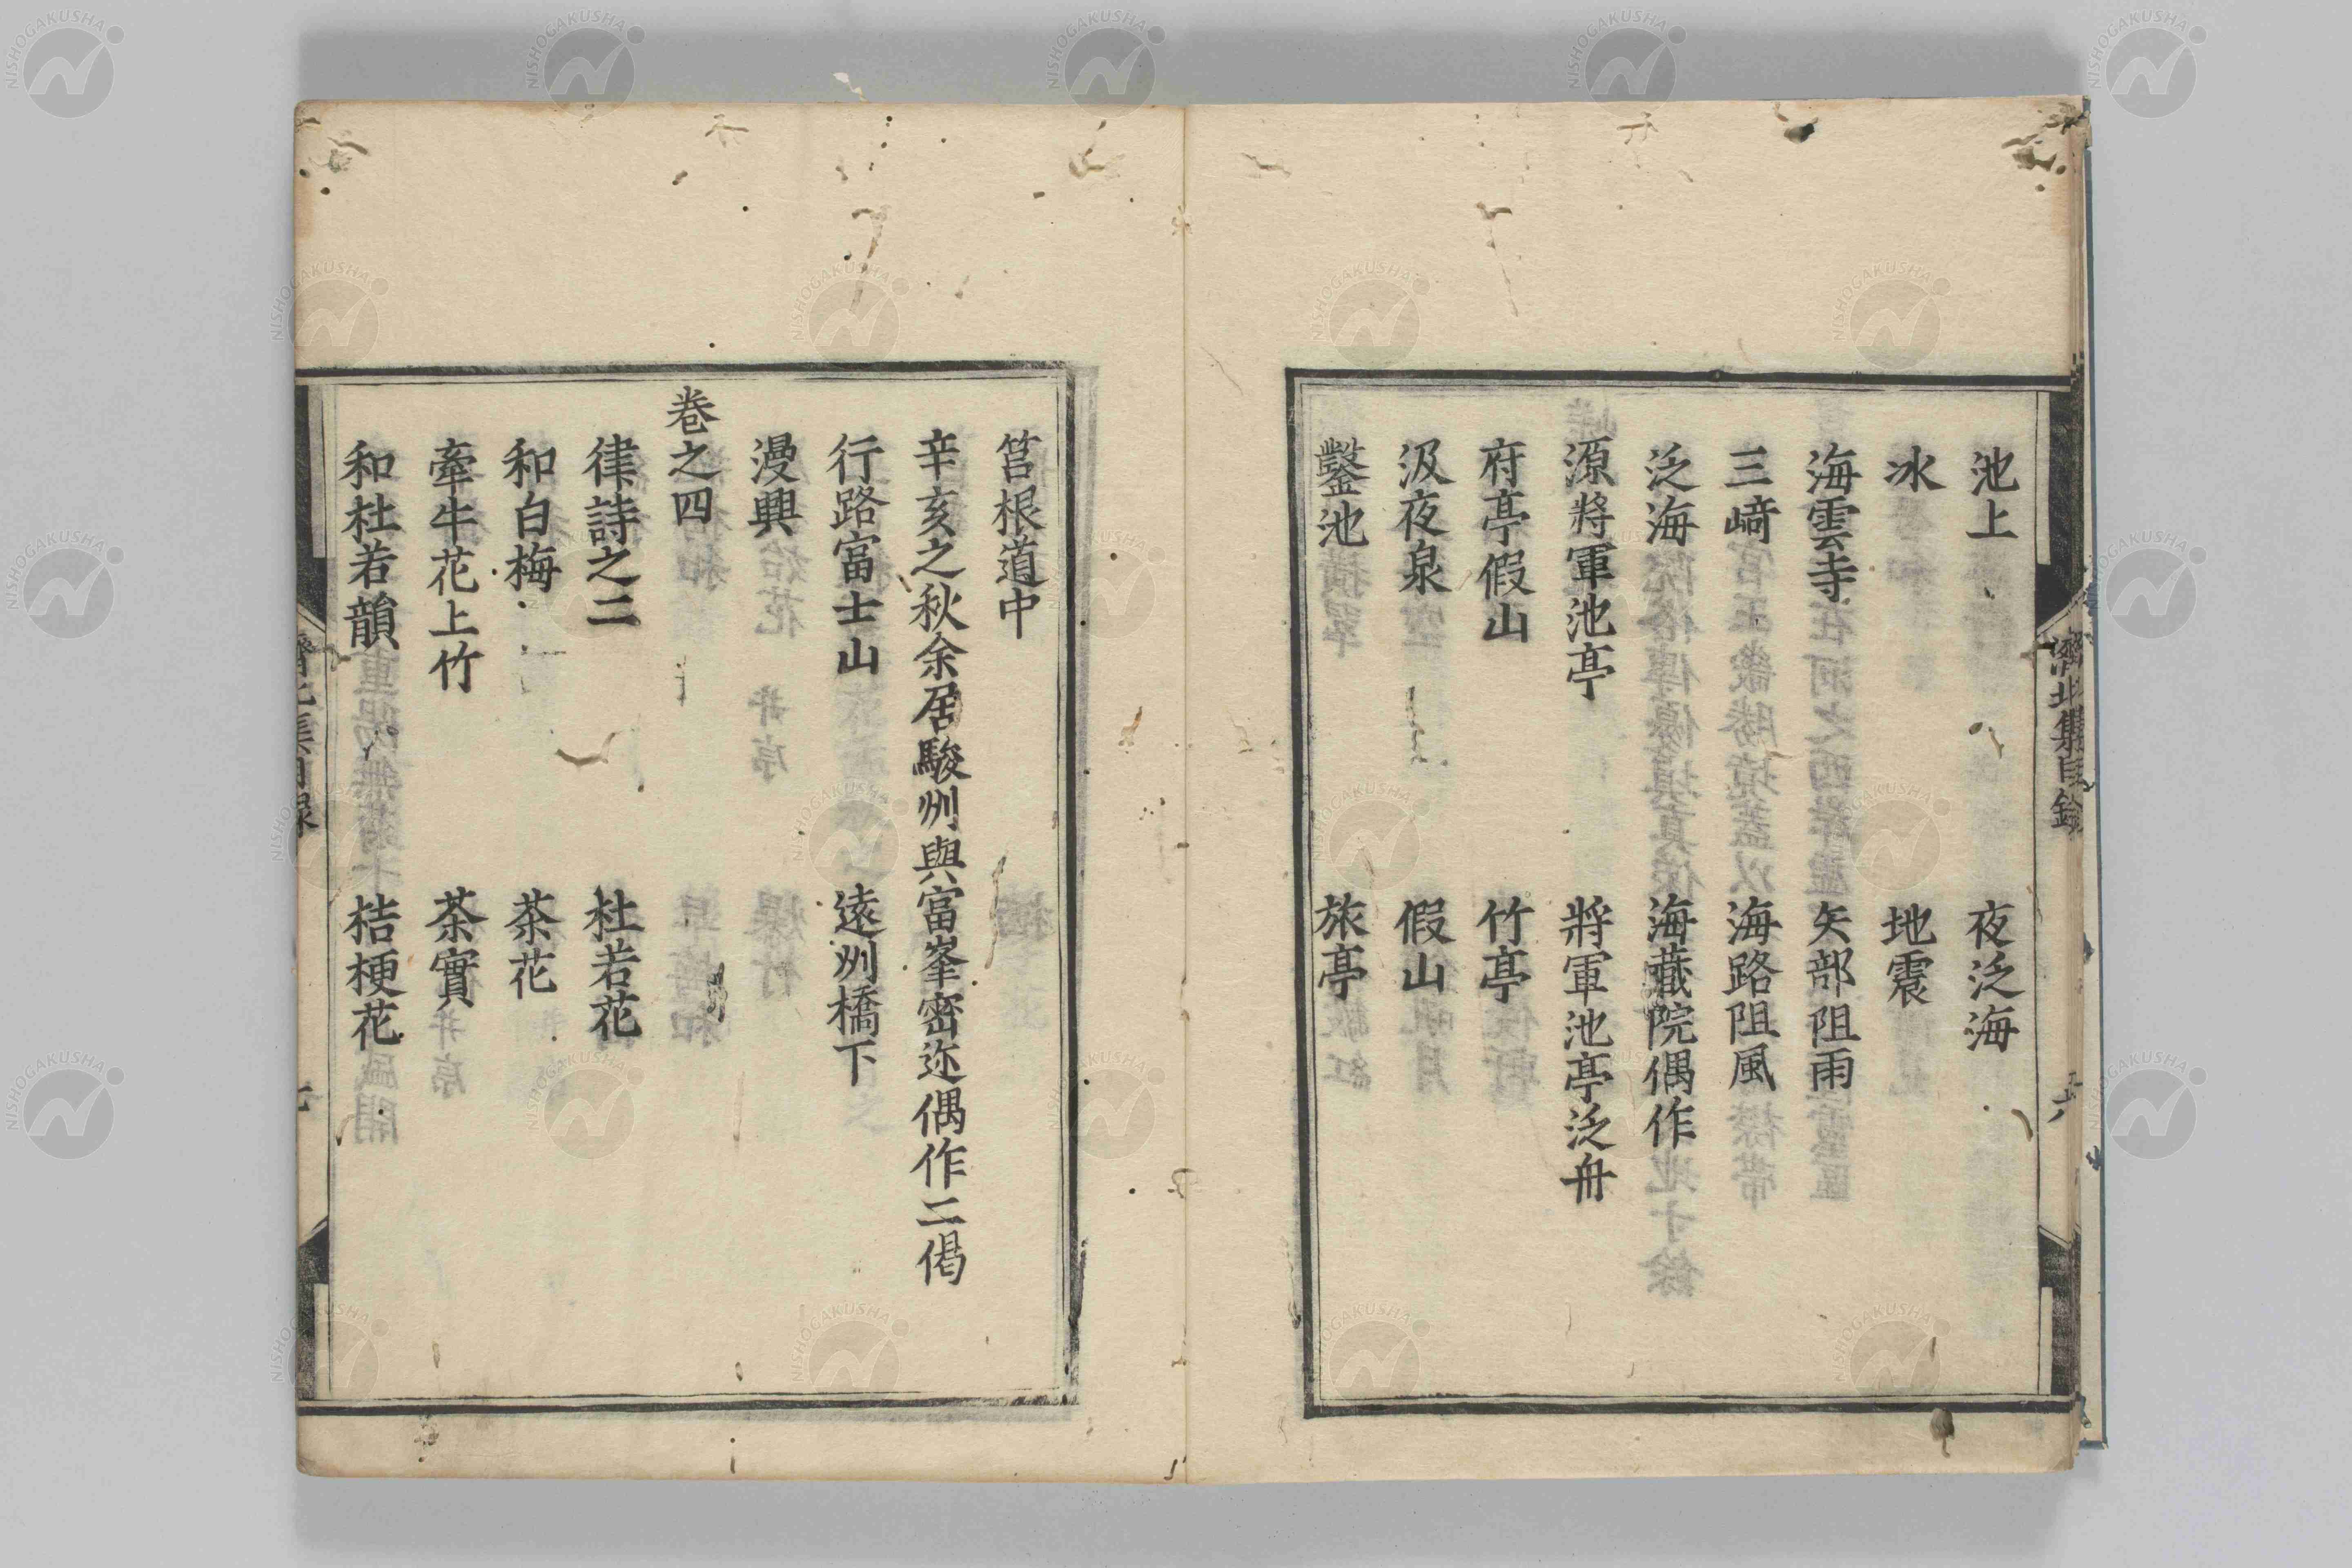 池上　夜泛海
冰　地震
海雲寺　矢部阻雨
三﨑　海路阻風
泛海　海藏院偶作
源將軍池亭　將軍池亭泛舟
府亭假山　竹亭
汲夜泉　假山
鑿池　旅亭
濟北集目錄
筥根道中
辛亥之秋余居駿州與富峯密迩偶作二偈
行路富士山　遠州橋下
漫興
卷之四
律詩之二　杜若花
和白梅　茶花
牽牛花上竹　茶實
和杜若韻　桔梗花
NISHOGAKUSHA